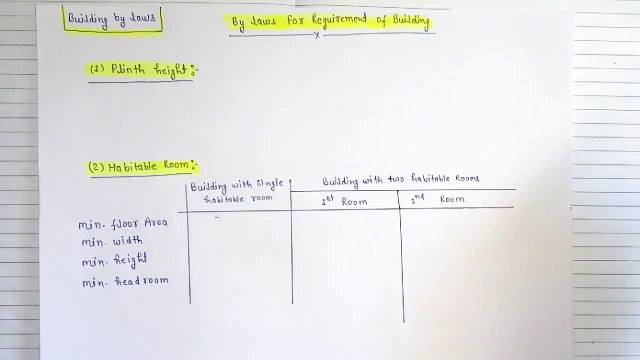 Building by laws
By laws for Requirement of Building
x
(1) Plinth height:-
(2) Habitable Room:-
Building with single habitable room
Building with two habitable Rooms
1st Room
2nd Room
min. floor Area
min. width
min. height
min. head room